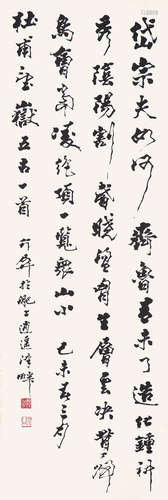 岱宗夫如何齊魯青未了造化鍾神
秀陰陽割昏曉盪胸生層雲決眥入歸
鳥會當凌絕頂一覽眾山小 己未春三月
杜甫望嶽五古一首 於肥上逍遙津畔